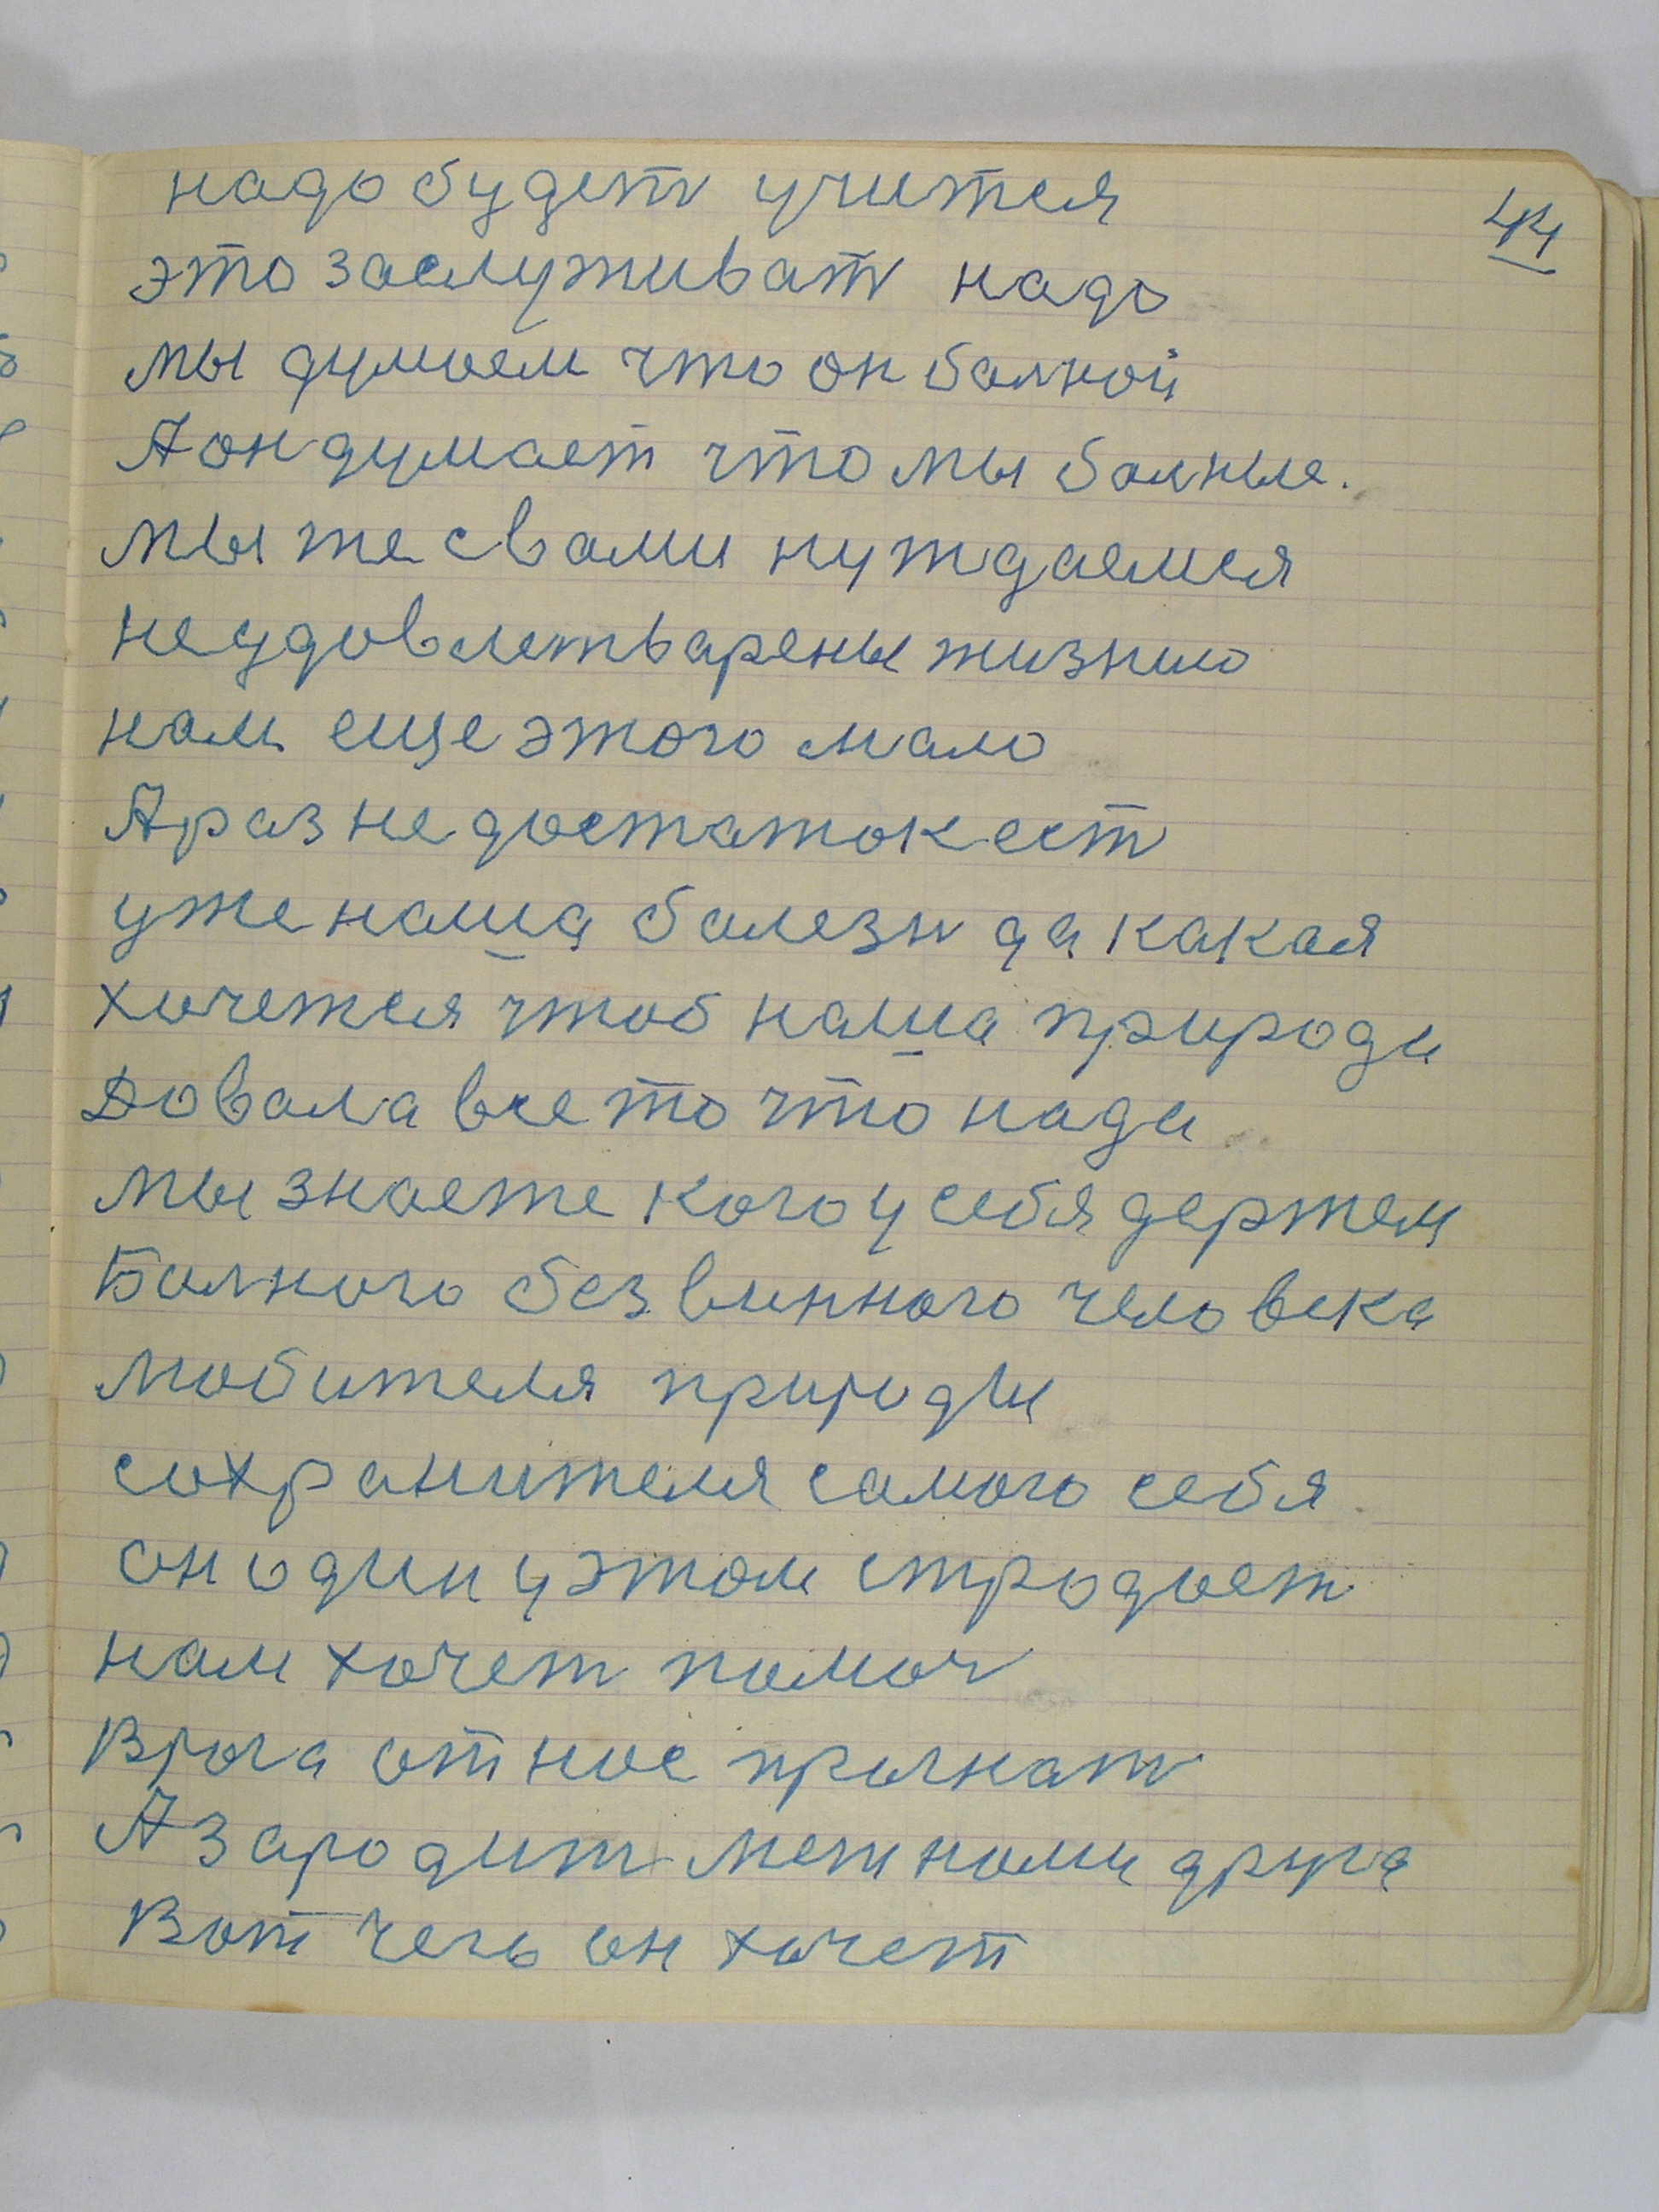 44
надо будет учится
это заслуживат надо
мы думаем что он болной
А он думает что мы болные.
мы же с вами нуждаемся
неудовлетварены жизнию
нам еще этого мало
А раз не достаток ест
уже наша болезн да какая
хочется чтоб наша природа
Довала все то что нада
мы знаете кого у себя держем
Болного безвинного человека
любителя природы
сохранителя самого себя
он один у этом страдает
нам хочет помоч
Врага от нас прогнат
А зародит меж нами друга
Вот чего он хочет